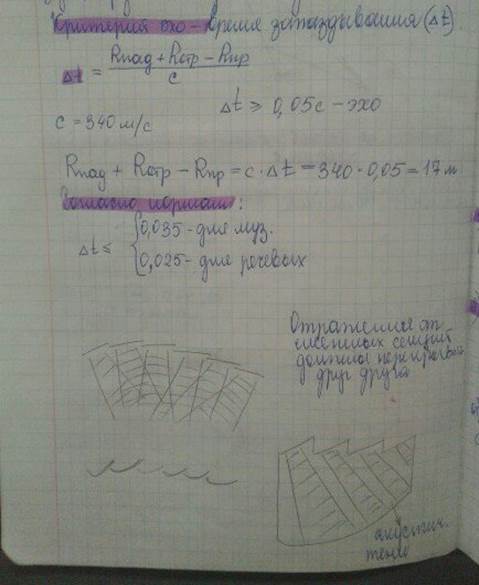 Критерий эхо – время запаздывания (Δt)
Δt = (Rпад + Rотр – Rпр) / c
Δt ≥ 0,05с – эхо
c = 340 м/с
Rпад + Rотр – Rпр = c · Δt = 340 · 0,05 = 17 м
Согласно нормам:
Δt ≤ { 0,035 - для муз.
0,025 - для речевых
Отражения от
смежных секций
должны перекрывать
друг друга
акустич.
тень